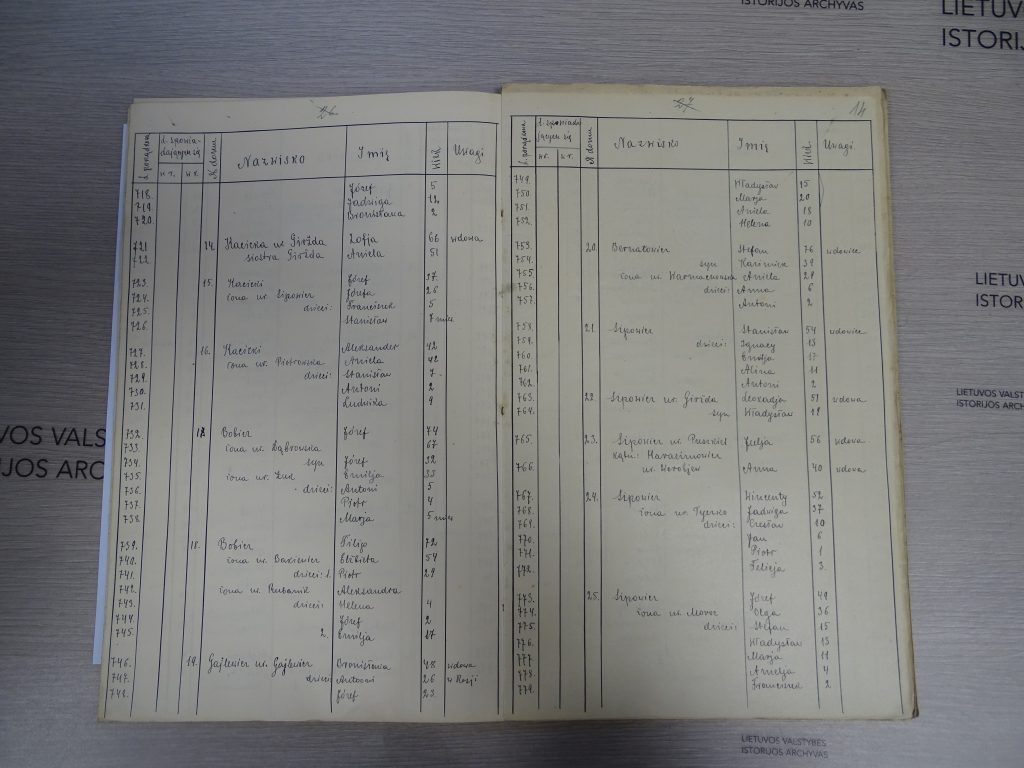 ISTORIJOS ARCHYVAS
LIETUV
ISTORIJ
26
l. porządkowa l. spowiadających się N. domu Nazwisko Imię Wiek Uwagi
718. Józef 5
719. Jadwiga 12
720. Bronisława 2
721. 14. Kacicka ur. Girżda Zofja 66 wdowa
722. siostra Girżda Aniela 51
723. 15. Kacicki Józef 37
724. żona ur. Szponier Józefa 26
725. dzieci: Franciszek 5
726. Stanisław 7 mies
727. 16. Kacicki Aleksander 42
728. żona ur. Piotrowska Aniela 42
729. dzieci: Stanisław 7
730. Antoni 2
731. Ludwika 9
732. Bobier Józef 74
733. żona ur. Dąbrowska 67
734. syn Józef 32
735. żona ur. Emilja 33
736. dzieci: Antoni 5
737. Piotr 4
738. Marja 5 mies
739. 18. Bobier Filip 72
740. żona ur. Elżbieta 54
741. dzieci: 1. Piotr 29
742. żona ur. Rubanik Aleksandra
743. dzieci: Helena 4
744. Józef 2
745. 2. Emilja 17
746. 19. Gajlewicz ur. Gajlewicz Bronisława 48 wdowa
747. dzieci Antoni 26 w Rosji
748. Józef 23
27
14
l. porządkowa l. spowiadających się N. domu Nazwisko Imię Wiek Uwagi
749. Władysław 25
750. Marja 20
751. Aniela 18
752. Helena 10
753. 20. Bernatowicz Stefan 76 wdowiec
754. syn Kazimierz 39
755. żona ur. Aniela 28
756. dzieci: Anna 6
757. Antoni 2
758. 21. Szponier Stanisław 54 wdowiec
759. dzieci: Ignacy 13
760. 17
761. Alina 11
762. Antoni 2
763. 22. Szponier ur. Girżda Leokadja 51 wdowa
764. syn Władysław 18
765. 23. Szponier ur. Julja 56 wdowa
kątn: Harasimowicz
766. ur. Worobjew Anna 40 wdowa
767. 24. Szponier Wincenty 52
768. żona ur. Jadwiga 37
769. dzieci: Czesław 10
770. Jan 6
771. Piotr 1
772. Felicja 3
773. 25. Szponier Józef 49
774. żona ur. Moroz Olga 36
775. dzieci: Stefan 15
776. Władysław 13
777. Marja 11
778. Amelja 4
779. Franciszek 2
LIETU
ISTORI
LIETUVOS VALST
ISTORIJOS ARCH
VOS VALST
RIJOS ARCH
LIETUVOS VALSTYBĖS
ISTORIJOS ARCHYVAS